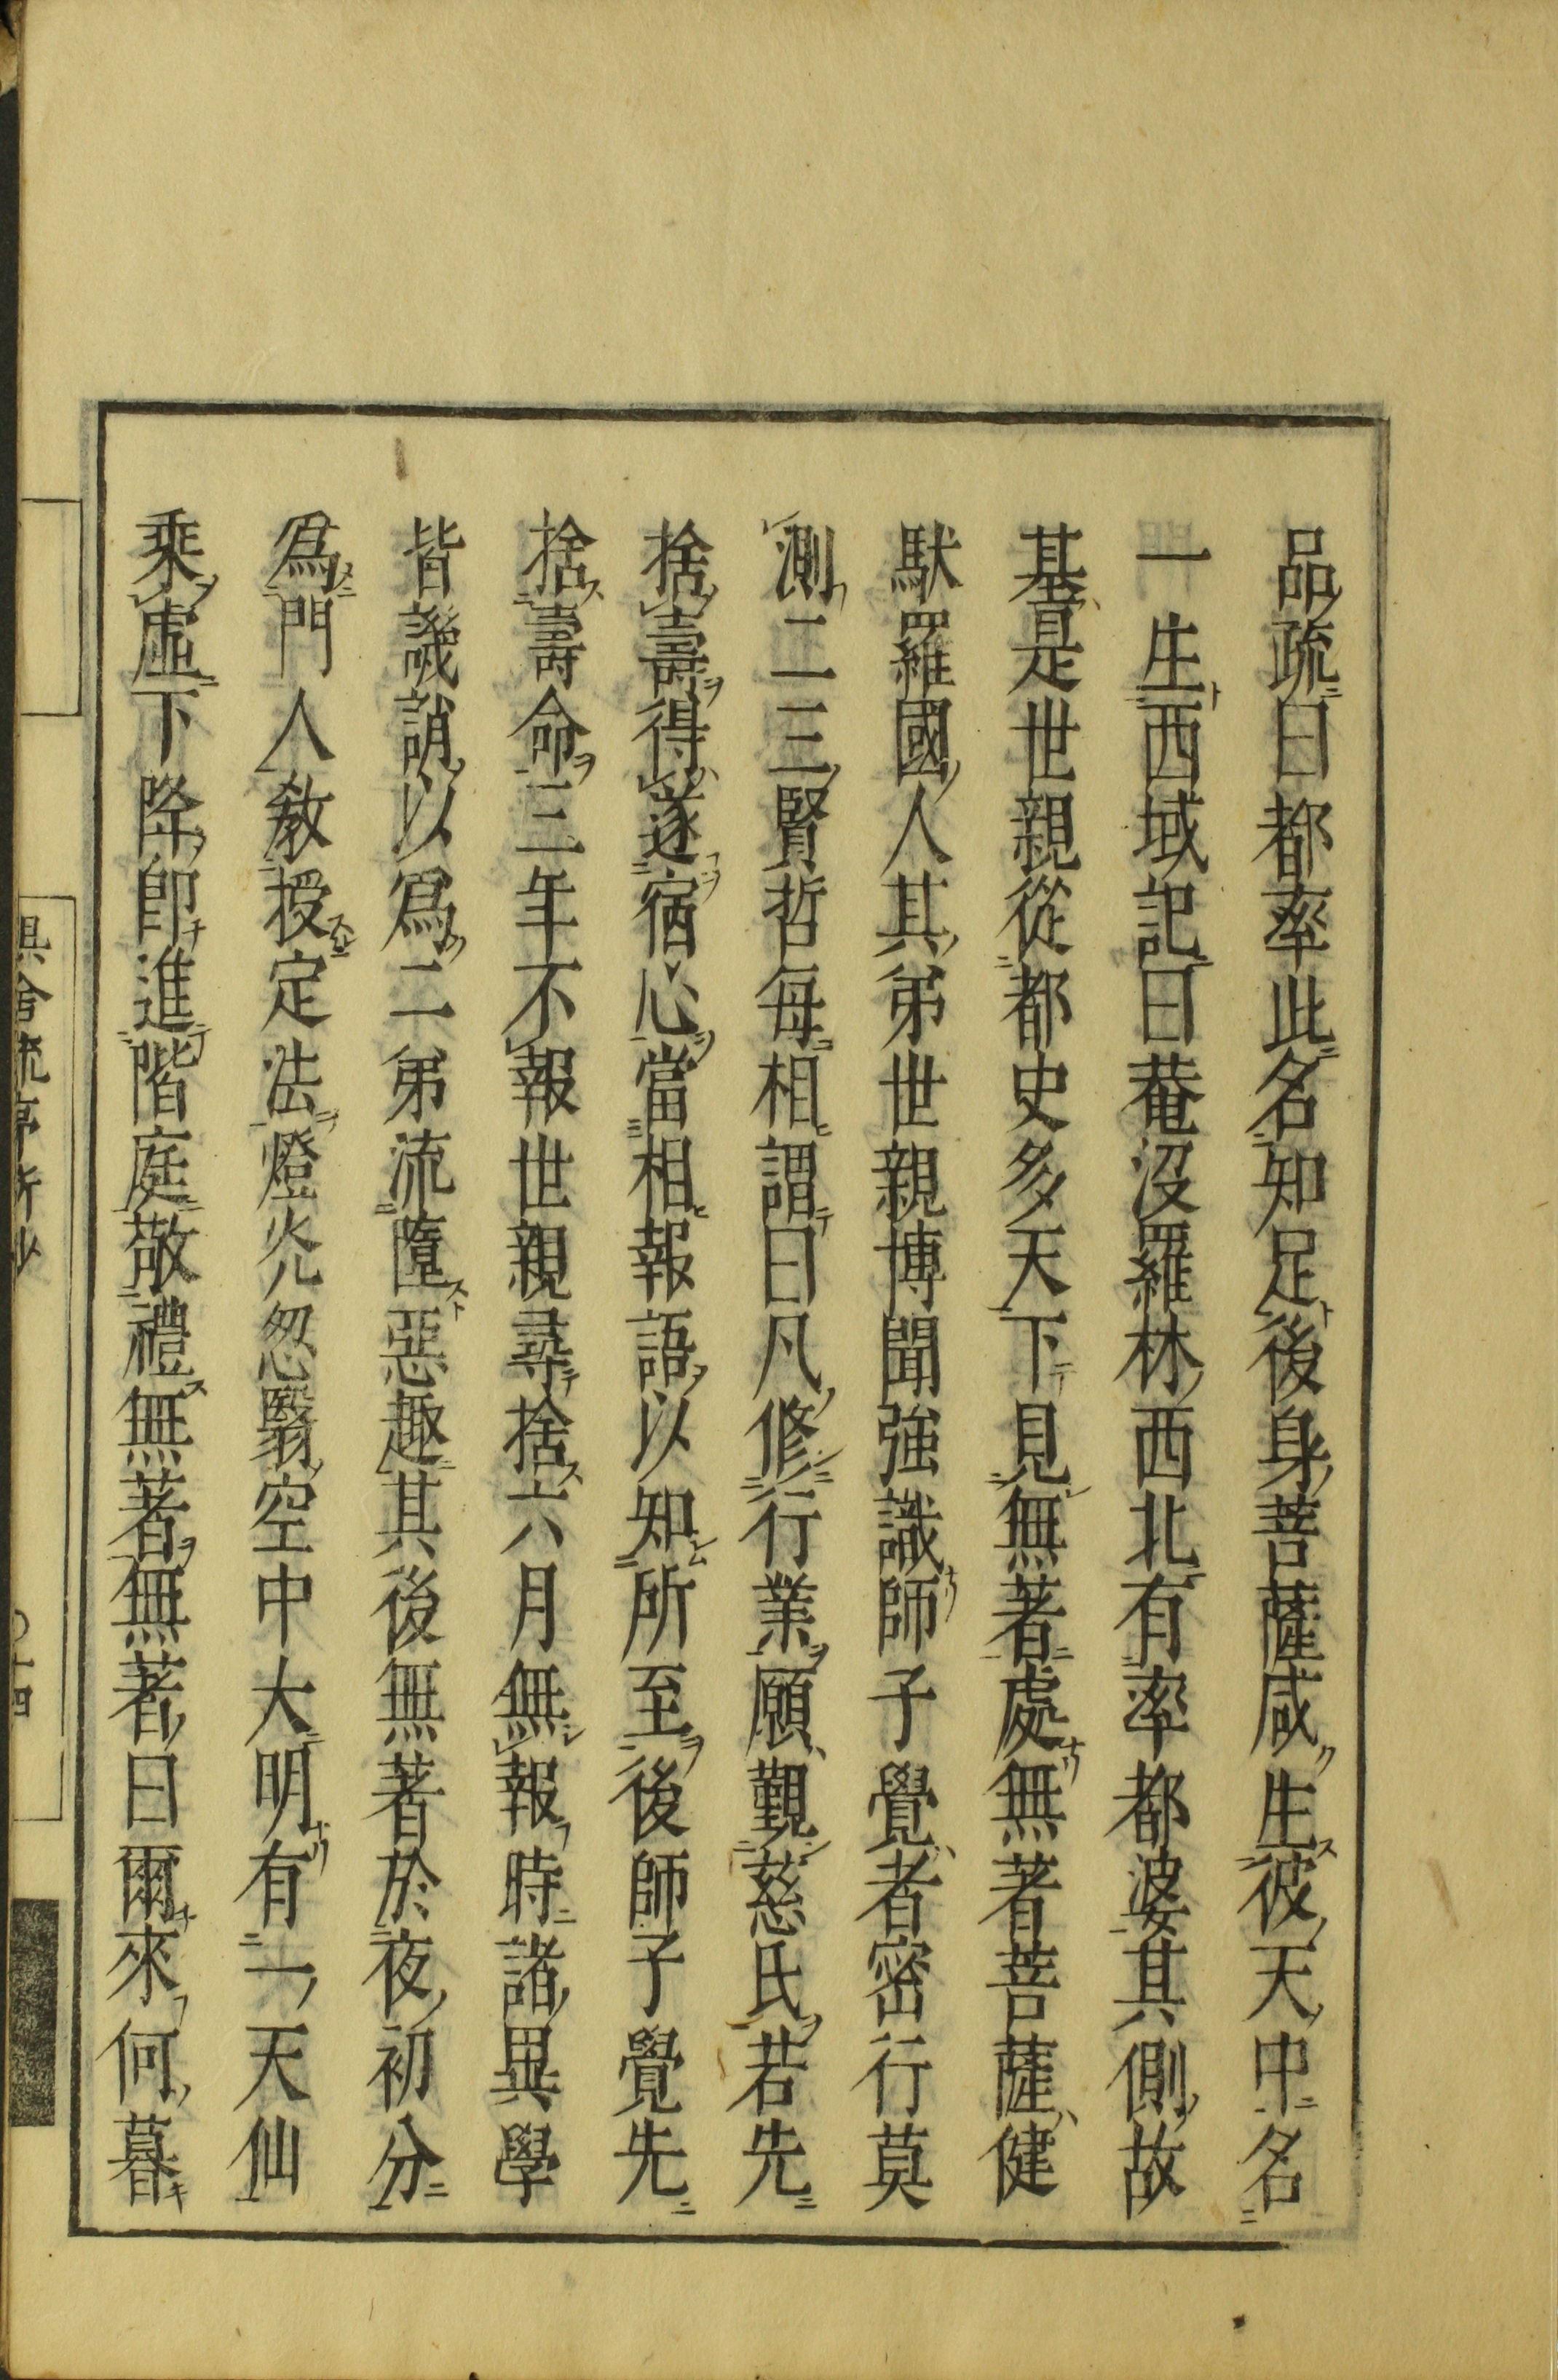 品疏曰都率此名知足後身菩薩咸生彼天中名
一生西域記曰菴沒羅林西北有率都婆其側故
基是世親從都史多天下見無著處無著菩薩健
馱羅國人其弟世親博聞強識師子覺者密行莫
測二三賢哲每相謂曰凡修行業願覲慈氏若先
捨壽得遂宿心當相報語以知所至後師子覺先
捨壽命三年不報世親尋捨六月無報時諸異學
皆譏誚以爲二弟流墮惡趣其後無著於夜初分
爲門人教授定法燈光忽翳空中大明有一天仙
乘虛下降即進階庭敬禮無著無著曰爾來何暮